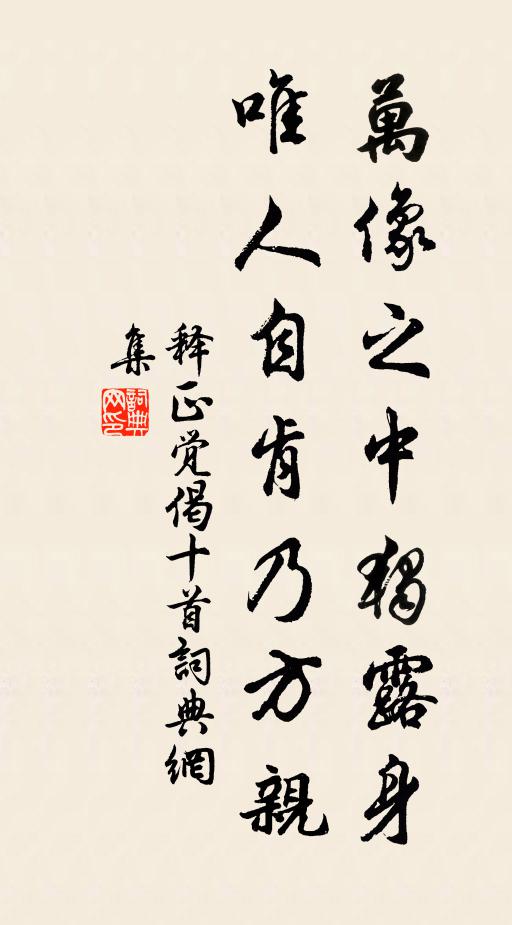 萬像之中獨露身
唯人自肯乃方親
释正觉偈十首詞典網
集
詞典
网印